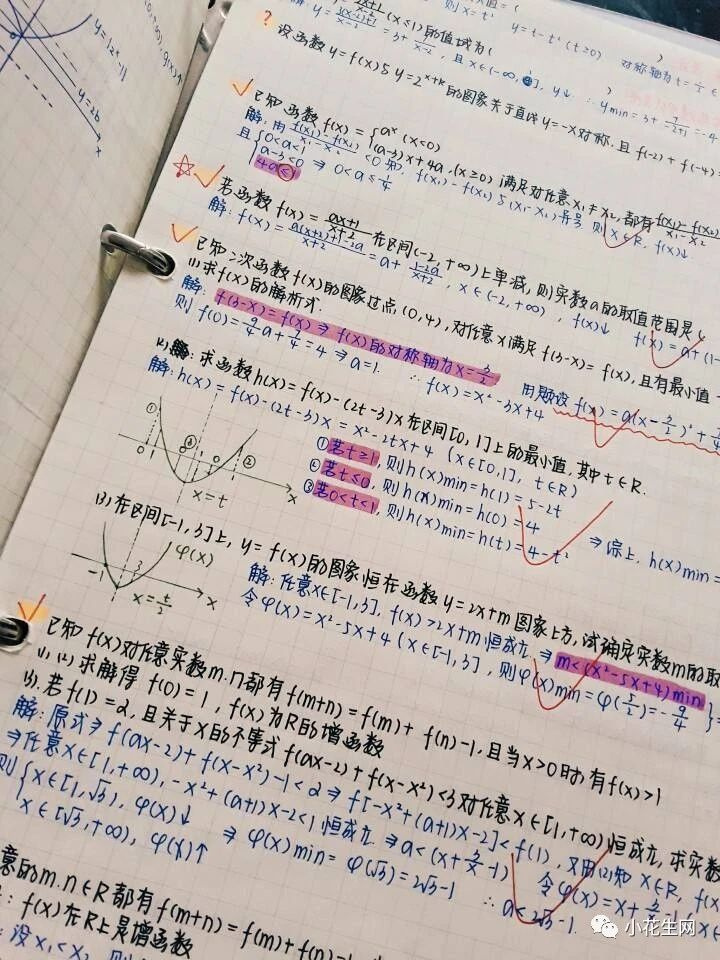 y=|2x-1|
y=2b
则 x=t² y=t-t²(t≥0) 对称轴为t=½
解: y=3(x-2)+7/x-2=3+7/x-2,且x∈(-∞, ],y↓ ∴ymin=3+7/-2+1=-4
? 设函数y=f(x)与y=2^(x+k)的图象关于直线y=-x对称,且f(-2)+f(-4)=
已知函数f(x)={a^x (x<0)
(a-3)x+4a,(x≥0) 满足对任意x₁≠x₂,都有f(x₁)-f(x₂)/x₁-x₂
解:由f(x₁)-f(x₂)/x₁-x₂<0知,f(x₁)-f(x₂)与(x₁-x₂)异号,则x∈R,f(x)↓
且{0<a<1
a-3<0 ⇒ 0<a≤¼
4a≤1
若函数f(x)=ax+1/x+2在区间(-2,+∞)上单减,则实数a的取值范围是(
解:f(x)=a(x+2)+1-2a/x+2=a+1-2a/x+2,x∈(-2,+∞),f(x)↓ f(x)=a+(1-
已知二次函数f(x)的图象过点(0,4),对任意x满足f(3-x)=f(x),且有最小值
(1)求f(x)的解析式.
解:f(3-x)=f(x)⇒f(x)的对称轴为x=3/2, 由题设f(x)=a(x-3/2)²+7/4
则f(0)=9/4a+7/4=4⇒a=1. ∴f(x)=x²-3x+4
(2)求函数h(x)=f(x)-(2t-3)x在区间[0,1]上的最小值,其中t∈R.
解:h(x)=f(x)-(2t-3)x=x²-2tx+4 (x∈[0,1], t∈R)
①若t≥1,则h(x)min=h(1)=5-2t
②若t≤0,则h(x)min=h(0)=4
③若0<t<1,则h(x)min=h(t)=4-t² ⇒综上,h(x)min=
① ③ ②
0 1 x
x=t
(3)在区间[-1,3]上,y=f(x)的图象恒在函数y=2x+m图象上方,试确定实数m的取
解:任意x∈[-1,3],f(x)>2x+m恒成立⇒m<(x²-5x+4)min
令φ(x)=x²-5x+4 (x∈[-1,3],则φ(x)min=φ(5/2)=-9/4}⇒
φ(x)
-1 3 x
已知f(x)对任意实数m.n都有f(m+n)=f(m)+f(n)-1,且当x>0时,有f(x)>1
(1).(2)求解得f(0)=1,f(x)为R的增函数
(3).若f(1)=2,且关于x的不等式f(ax-2)+f(x-x²)<3对任意x∈[1,+∞)恒成立,求实数
解:原式⇒f(ax-2)+f(x-x²)-1<2⇒f[-x²+(a+1)x-2]<f(1),又由(2)知x∈R,f(x)
⇒任意x∈[1,+∞),-x²+(a+1)x-2<1恒成立⇒a<(x+3/x-1) 令φ(x)=x+3/x
则{x∈[1,√3),φ(x)↓
x∈[√3,+∞),φ(x)↑ ⇒φ(x)min=φ(√3)=2√3-1 ∴a<2√3-1.
意的m.n∈R都有f(m+n)=f(m)+f(n)
:f(x)在R上是增函数
:设x₁<x₂,则
小花生网